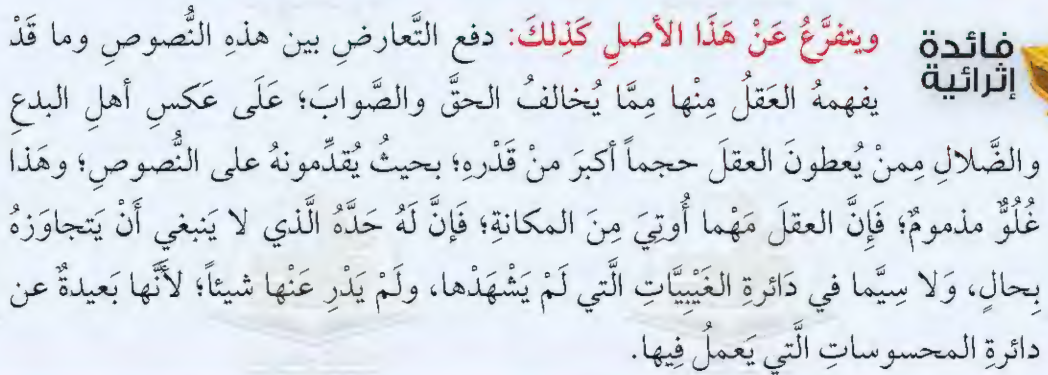 فائدة إثرائية
ويتفرَّعُ عَنْ هَذَا الأصلِ كَذلِكَ: دفع التَّعارضِ بين هذهِ النُّصوصِ وما قَدْ
يفهمهُ العَقلُ مِنْها مِمَّا يُخالفُ الحقَّ والصَّوابَ؛ عَلَى عَكسِ أهلِ البدعِ
والضَّلالِ مِمنْ يُعطونَ العقلَ حجماً أكبرَ منْ قَدْرهِ؛ بحيثُ يُقدِّمونهُ على النُّصوصِ؛ وهَذا
غُلُوٌّ مذمومٌ؛ فَإِنَّ العقلَ مَهْما أُوتِيَ مِنَ المكانةِ؛ فَإنَّ لَهُ حَدَّهُ الَّذي لا يَنبغي أَنْ يَتجاوَزهُ
بِحالٍ، وَلا سِيَّما في دَائرةِ الغَيْبِيَّاتِ الَّتي لَمْ يَشْهَدْها، ولَمْ يَدْرِ عَنْها شيئاً؛ لأنَّها بَعيدةٌ عن
دائرةِ المحسوساتِ الَّتي يَعملُ فِيها.